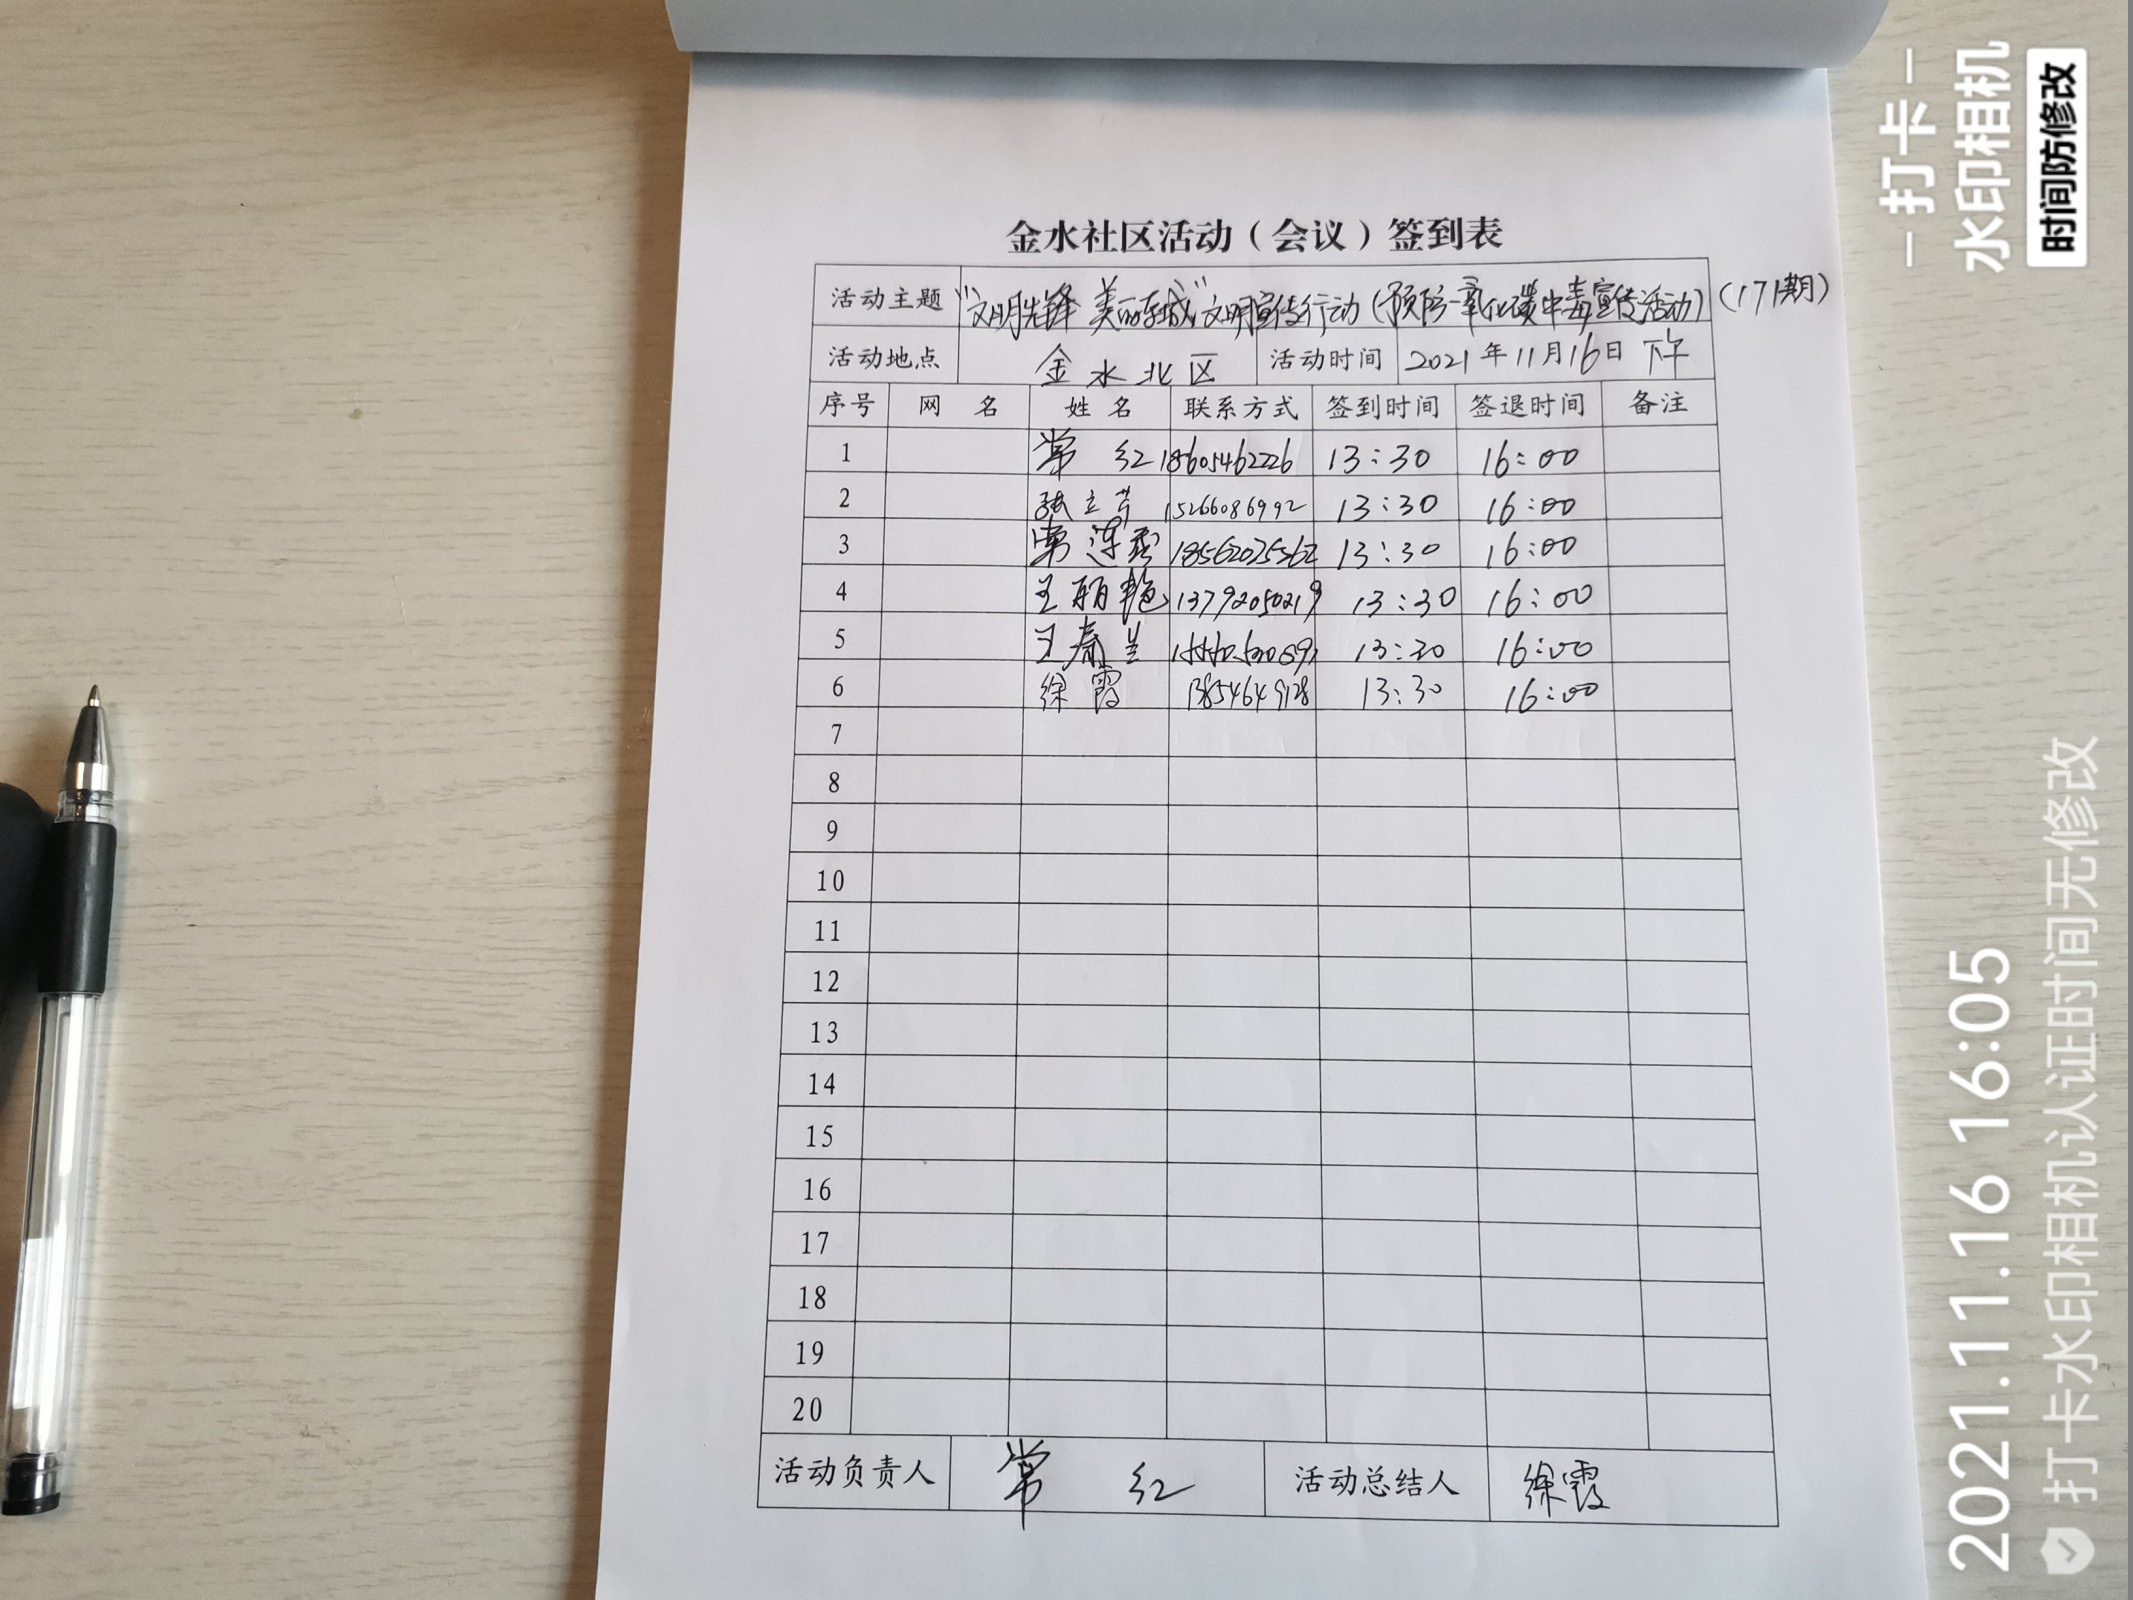 金水社区活动(会议)签到表
活动主题 "文明先锋 美丽东城"文明宣传行动(预防一氧化碳中毒宣传活动)(171期)
活动地点 金水北区 活动时间 2021年11月16日 下午
序号 网 名 姓 名 联系方式 签到时间 签退时间 备注
1 常 红 18605462226 13:30 16:00
2 张立芳 15266086992 13:30 16:00
3 13:30 16:00
4 王丽艳 13792050219 13:30 16:00
5 王春兰 13:30 16:00
6 徐霞 13854649128 13:30 16:00
7
8
9
10
11
12
13
14
15
16
17
18
19
20
活动负责人 常 红 活动总结人 徐霞
打卡
水印相机
时间防修改
2021.11.16 16:05
打卡水印相机认证时间无修改